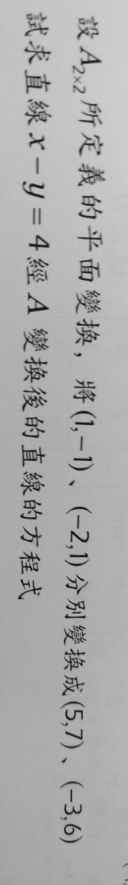 設 A₂ₓ₂ 所定義的平面變換，將 (1,−1)、(−2,1) 分別變換成 (5,7)、(−3,6)
試求直線 x − y = 4 經 A 變換後的直線的方程式